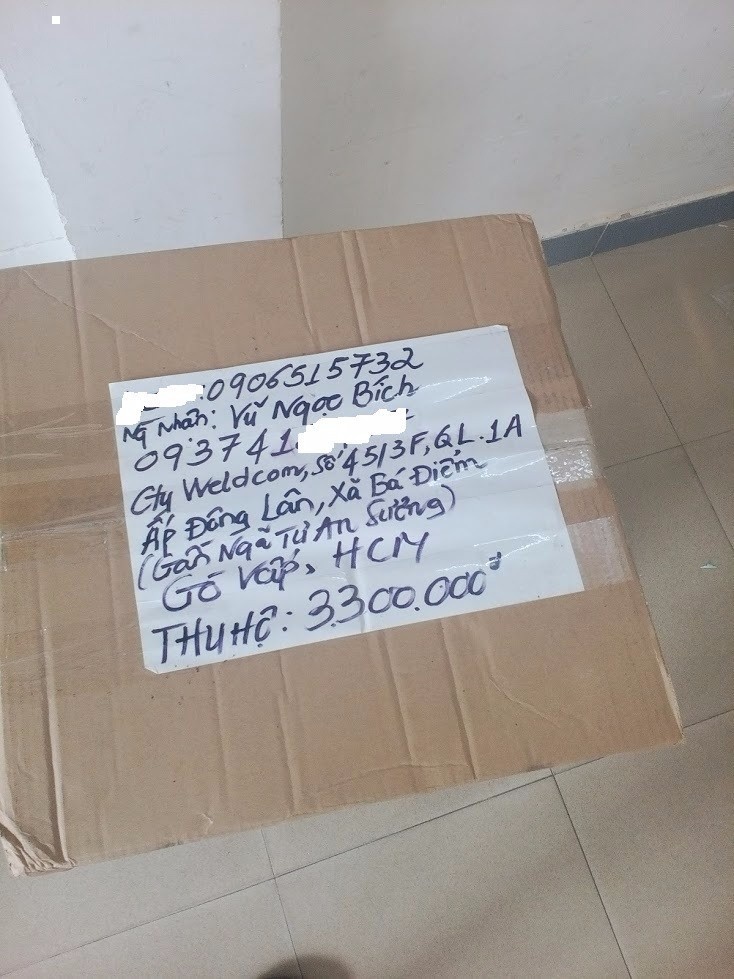 : 0906515732
Ng Nhân: Vũ Ngọc Bích
093741
Cty Weldcom, Số 4513F, QL.1A
Ấp Đông Lân, Xã Bá Điểm
(Gần Ngã Tư An Sương)
Gò Vấp, HCM
THU HỘ: 3.300.000đ